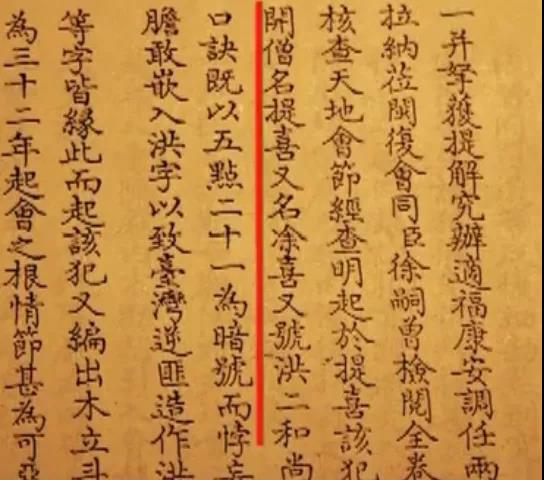 一并拏獲提解究辦適福康安調任兩
拉納莅閩復會同臣徐嗣曾檢閱全卷
核查天地會節經查明起於提喜該犯
開僧名提喜又名凃喜又號洪二和尚
口訣既以五點二十一為暗號而悖妄
膽敢嵌入洪字以致臺灣逆匪造作洪
等字皆緣此而起該犯又編出木立斗
為三十二年起會之根情節甚為可